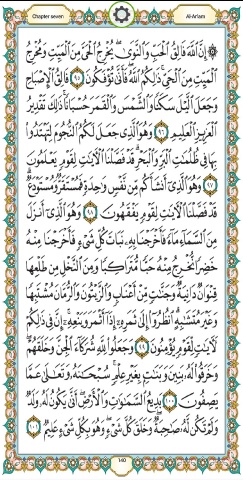 Chapter seven Al-An'am
۞ إِنَّ ٱللَّهَ فَالِقُ ٱلْحَبِّ وَٱلنَّوَىٰ يُخْرِجُ ٱلْحَيَّ مِنَ ٱلْمَيِّتِ وَمُخْرِجُ
ٱلْمَيِّتِ مِنَ ٱلْحَيِّ ذَٰلِكُمُ ٱللَّهُ فَأَنَّىٰ تُؤْفَكُونَ ٩٥ فَالِقُ ٱلْإِصْبَاحِ
وَجَعَلَ ٱلَّيْلَ سَكَنًا وَٱلشَّمْسَ وَٱلْقَمَرَ حُسْبَانًا ذَٰلِكَ تَقْدِيرُ
ٱلْعَزِيزِ ٱلْعَلِيمِ ٩٦ وَهُوَ ٱلَّذِى جَعَلَ لَكُمُ ٱلنُّجُومَ لِتَهْتَدُوا۟
بِهَا فِى ظُلُمَٰتِ ٱلْبَرِّ وَٱلْبَحْرِ قَدْ فَصَّلْنَا ٱلْـَٔايَٰتِ لِقَوْمٍ يَعْلَمُونَ
٩٧ وَهُوَ ٱلَّذِىٓ أَنشَأَكُم مِّن نَّفْسٍ وَٰحِدَةٍ فَمُسْتَقَرٌّ وَمُسْتَوْدَعٌ
قَدْ فَصَّلْنَا ٱلْـَٔايَٰتِ لِقَوْمٍ يَفْقَهُونَ ٩٨ وَهُوَ ٱلَّذِىٓ أَنزَلَ
مِنَ ٱلسَّمَآءِ مَآءً فَأَخْرَجْنَا بِهِۦ نَبَاتَ كُلِّ شَىْءٍ فَأَخْرَجْنَا مِنْهُ
خَضِرًا نُّخْرِجُ مِنْهُ حَبًّا مُّتَرَاكِبًا وَمِنَ ٱلنَّخْلِ مِن طَلْعِهَا
قِنْوَانٌ دَانِيَةٌ وَجَنَّٰتٍ مِّنْ أَعْنَابٍ وَٱلزَّيْتُونَ وَٱلرُّمَّانَ مُشْتَبِهًا
وَغَيْرَ مُتَشَٰبِهٍ ٱنظُرُوٓا۟ إِلَىٰ ثَمَرِهِۦٓ إِذَآ أَثْمَرَ وَيَنْعِهِۦٓ إِنَّ فِى ذَٰلِكُمْ
لَـَٔايَٰتٍ لِّقَوْمٍ يُؤْمِنُونَ ٩٩ وَجَعَلُوا۟ لِلَّهِ شُرَكَآءَ ٱلْجِنَّ وَخَلَقَهُمْ
وَخَرَقُوا۟ لَهُۥ بَنِينَ وَبَنَٰتٍۭ بِغَيْرِ عِلْمٍ سُبْحَٰنَهُۥ وَتَعَٰلَىٰ عَمَّا
يَصِفُونَ ١٠٠ بَدِيعُ ٱلسَّمَٰوَٰتِ وَٱلْأَرْضِ أَنَّىٰ يَكُونُ لَهُۥ وَلَدٌ
وَلَمْ تَكُن لَّهُۥ صَٰحِبَةٌ وَخَلَقَ كُلَّ شَىْءٍ وَهُوَ بِكُلِّ شَىْءٍ عَلِيمٌ ١٠١
140